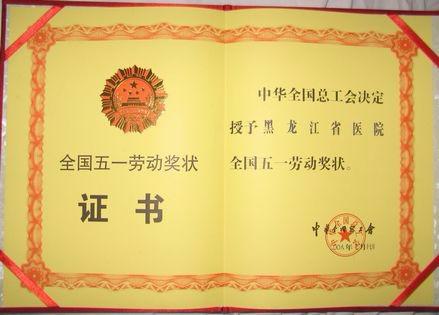 全国五一劳动奖状
证书
中华全国总工会决定
授予黑龙江省医院
全国五一劳动奖状。
中华全国总工会